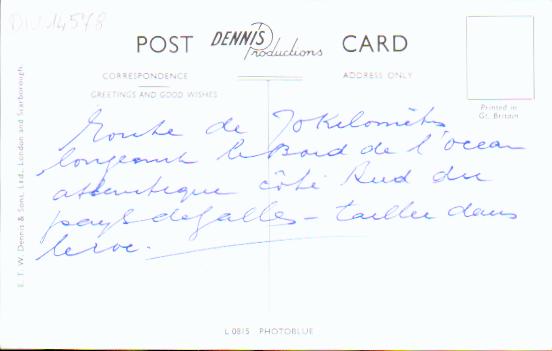 DIV 14578
POST DENNIS Productions CARD
CORRESPONDENCE ADDRESS ONLY
GREETINGS AND GOOD WISHES
Printed in
Gt. Britain
Route de 70 Kilomèts
longeant le Bord de l'ocean
atlentique côté Sud du
pays de galles – tailler dans
le roc.
E. T. W. Dennis & Sons, Ltd., London and Scarborough
L 0815 PHOTOBLUE